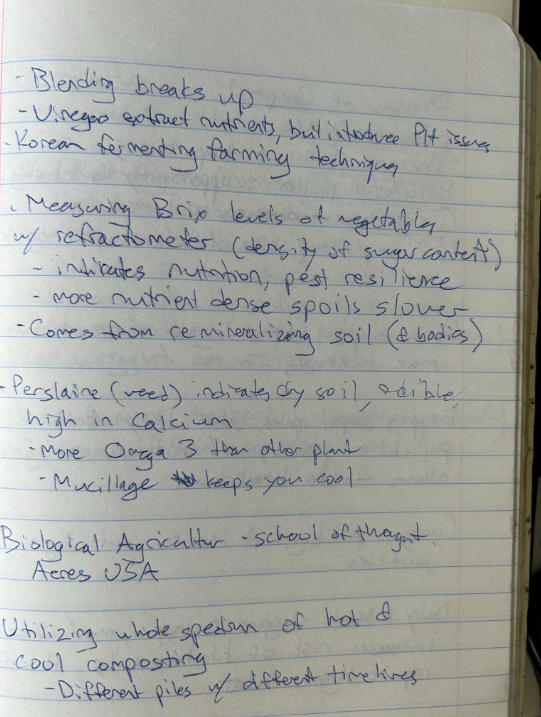 - Blending breaks up
- Vinegar extract nutrients, but introduce PH issues
- Korean fermenting farming technique
. Measuring Brix levels of vegetables
w/ refractometer (density of sugar content)
- indicates nutrition, pest resilience
- more nutrient dense spoils slower
- Comes from remineralizing soil (& bodies)
- Perslaine (weed) indicates dry soil, edible,
high in Calcium
- More Omega 3 than other plant
- Mucillage keeps you cool
Biological Agricultur - school of thought.
Acres USA
Utilizing whole spectrum of hot &
cool composting
- Different piles w/ different timelines